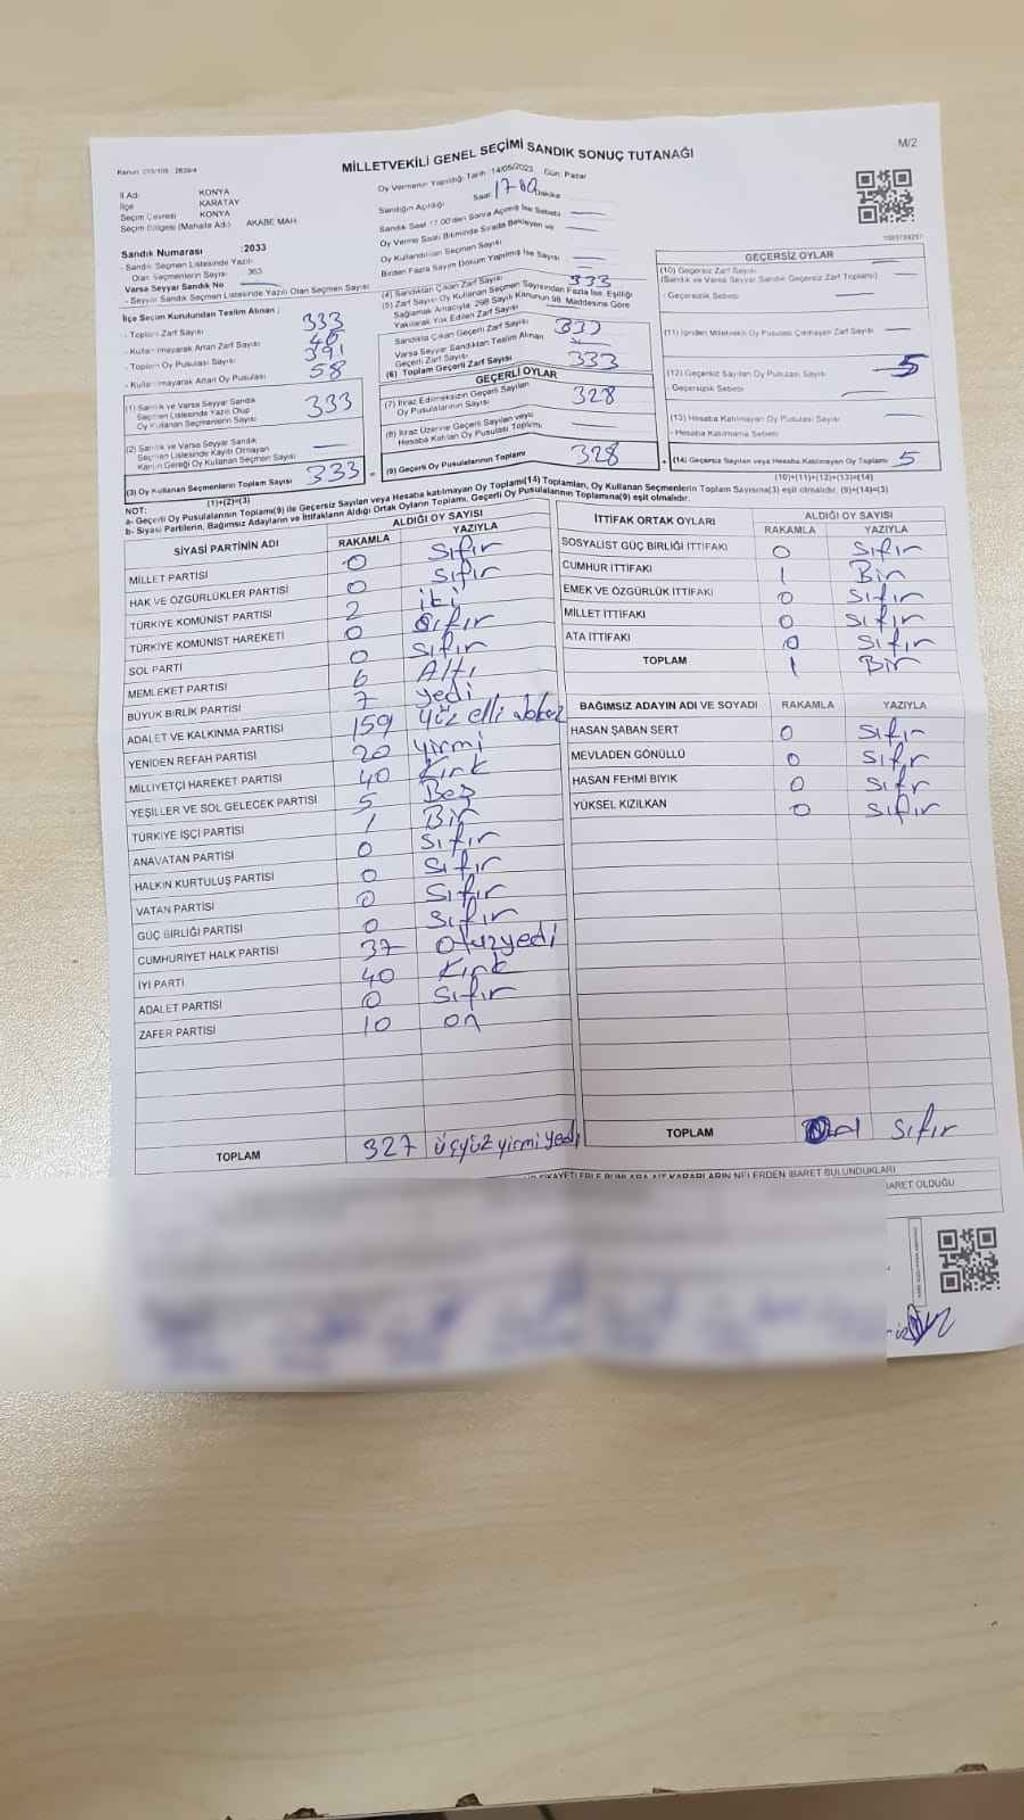 M/2
MİLLETVEKİLİ GENEL SEÇİMİ SANDIK SONUÇ TUTANAĞI
İl Adı KONYA
İlçe KARATAY
Seçim Çevresi KONYA
Seçim Bölgesi (Mahalle Adı) AKABE MAH.
Sandık Numarası :2033
- Sandık Seçmen Listesinde Yazılı
Olan Seçmenlerin Sayısı 363
Varsa Seyyar Sandık No
- Seyyar Sandık Seçmen Listesinde Yazılı Olan Seçmen Sayısı
Oy Vermenin Yapıldığı Tarih :14/05/2023 Gün: Pazar
Sandığın Açıldığı Saat 17 Dakika
Sandık Saat 17.00'den Sonra Açılmış İse Sebebi
Oy Verme Saati Bitiminde Sırada Bekleyen ve
Oy Kullandırılan Seçmen Sayısı
Birden Fazla Sayım Döküm Yapılmış İse Sayısı
İlçe Seçim Kurulundan Teslim Alınan ;
- Toplam Zarf Sayısı 333
- Kullanılmayarak Artan Zarf Sayısı
- Toplam Oy Pusulası Sayısı 391
- Kullanılmayarak Artan Oy Pusulası 58
(1) Sandık ve Varsa Seyyar Sandık
Seçmen Listesinde Yazılı Olup
Oy Kullanan Seçmenlerin Sayısı 333
(2) Sandık ve Varsa Seyyar Sandık
Seçmen Listesinde Kayıtlı Olmayan
Kanun Gereği Oy Kullanan Seçmen Sayısı
(3) Oy Kullanan Seçmenlerin Toplam Sayısı 333
(1)+(2)=(3)
(4) Sandıktan Çıkan Zarf Sayısı 333
(5) Zarf Sayısı Oy Kullanan Seçmen Sayısından Fazla İse, Eşitliği
Sağlamak Amacıyla 298 Sayılı Kanunun 98. Maddesine Göre
Yakılarak Yok Edilen Zarf Sayısı
Sandıkta Çıkan Geçerli Zarf Sayısı 333
Varsa Seyyar Sandıktan Teslim Alınan
Geçerli Zarf Sayısı
(6) Toplam Geçerli Zarf Sayısı 333
GEÇERLİ OYLAR
(7) İtiraz Edilmeksizin Geçerli Sayılan
Oy Pusulalarının Sayısı 328
(8) İtiraz Üzerine Geçerli Sayılan veya
Hesaba Katılan Oy Pusulası Toplamı
(9) Geçerli Oy Pusulalarının Toplamı 328
GEÇERSİZ OYLAR
(10) Geçersiz Zarf Sayısı
(Sandık ve Varsa Seyyar Sandık Geçersiz Zarf Toplamı)
- Geçersizlik Sebebi
(11) İçinden Milletvekili Oy Pusulası Çıkmayan Zarf Sayısı
(12) Geçersiz Sayılan Oy Pusulası Sayısı 5
- Geçersizlik Sebebi
(13) Hesaba Katılmayan Oy Pusulası Sayısı
- Hesaba Katılmama Sebebi
(14) Geçersiz Sayılan veya Hesaba Katılmayan Oy Toplamı 5
(10)+(11)+(12)+(13)=(14)
NOT:
a- Geçerli Oy Pusulalarının Toplamı(9) ile Geçersiz Sayılan veya Hesaba katılmayan Oy Toplamı(14) Toplamları, Oy Kullanan Seçmenlerin Toplam Sayısına(3) eşit olmalıdır. (9)+(14)=(3)
b- Siyasi Partilerin, Bağımsız Adayların ve İttifakların Aldığı Ortak Oyların Toplamı, Geçerli Oy Pusulalarının Toplamına(9) eşit olmalıdır.
SİYASİ PARTİNİN ADI ALDIĞI OY SAYISI
RAKAMLA YAZIYLA
MİLLET PARTİSİ 0 Sıfır
HAK VE ÖZGÜRLÜKLER PARTİSİ 0 Sıfır
TÜRKİYE KOMÜNİST PARTİSİ 2 iki
TÜRKİYE KOMÜNİST HAREKETİ 0 Sıfır
SOL PARTİ 0 Sıfır
MEMLEKET PARTİSİ 6 Altı
BÜYÜK BİRLİK PARTİSİ 7 yedi
ADALET VE KALKINMA PARTİSİ 159 yüz elli dokuz
YENİDEN REFAH PARTİSİ 20 yirmi
MİLLİYETÇİ HAREKET PARTİSİ 40 Kırk
YEŞİLLER VE SOL GELECEK PARTİSİ 5 Beş
TÜRKİYE İŞÇİ PARTİSİ 1 Bir
ANAVATAN PARTİSİ 0 Sıfır
HALKIN KURTULUŞ PARTİSİ 0 Sıfır
VATAN PARTİSİ 0 Sıfır
GÜÇ BİRLİĞİ PARTİSİ 0 Sıfır
CUMHURİYET HALK PARTİSİ 37 Otuzyedi
İYİ PARTİ 40 Kırk
ADALET PARTİSİ 0 Sıfır
ZAFER PARTİSİ 10 on
TOPLAM 327 üçyüz yirmi yedi
İTTİFAK ORTAK OYLARI ALDIĞI OY SAYISI
RAKAMLA YAZIYLA
SOSYALİST GÜÇ BİRLİĞİ İTTİFAKI 0 Sıfır
CUMHUR İTTİFAKI 1 Bir
EMEK VE ÖZGÜRLÜK İTTİFAKI 0 Sıfır
MİLLET İTTİFAKI 0 Sıfır
ATA İTTİFAKI 0 Sıfır
TOPLAM 1 Bir
BAĞIMSIZ ADAYIN ADI VE SOYADI RAKAMLA YAZIYLA
HASAN ŞABAN SERT 0 Sıfır
MEVLADEN GÖNÜLLÜ 0 Sıfır
HASAN FEHMİ BIYIK 0 Sıfır
YÜKSEL KIZILKAN 0 Sıfır
TOPLAM Sıfır
KARARLARIN NELERDEN İBARET BULUNDUKLARI
İBARET OLDUĞU